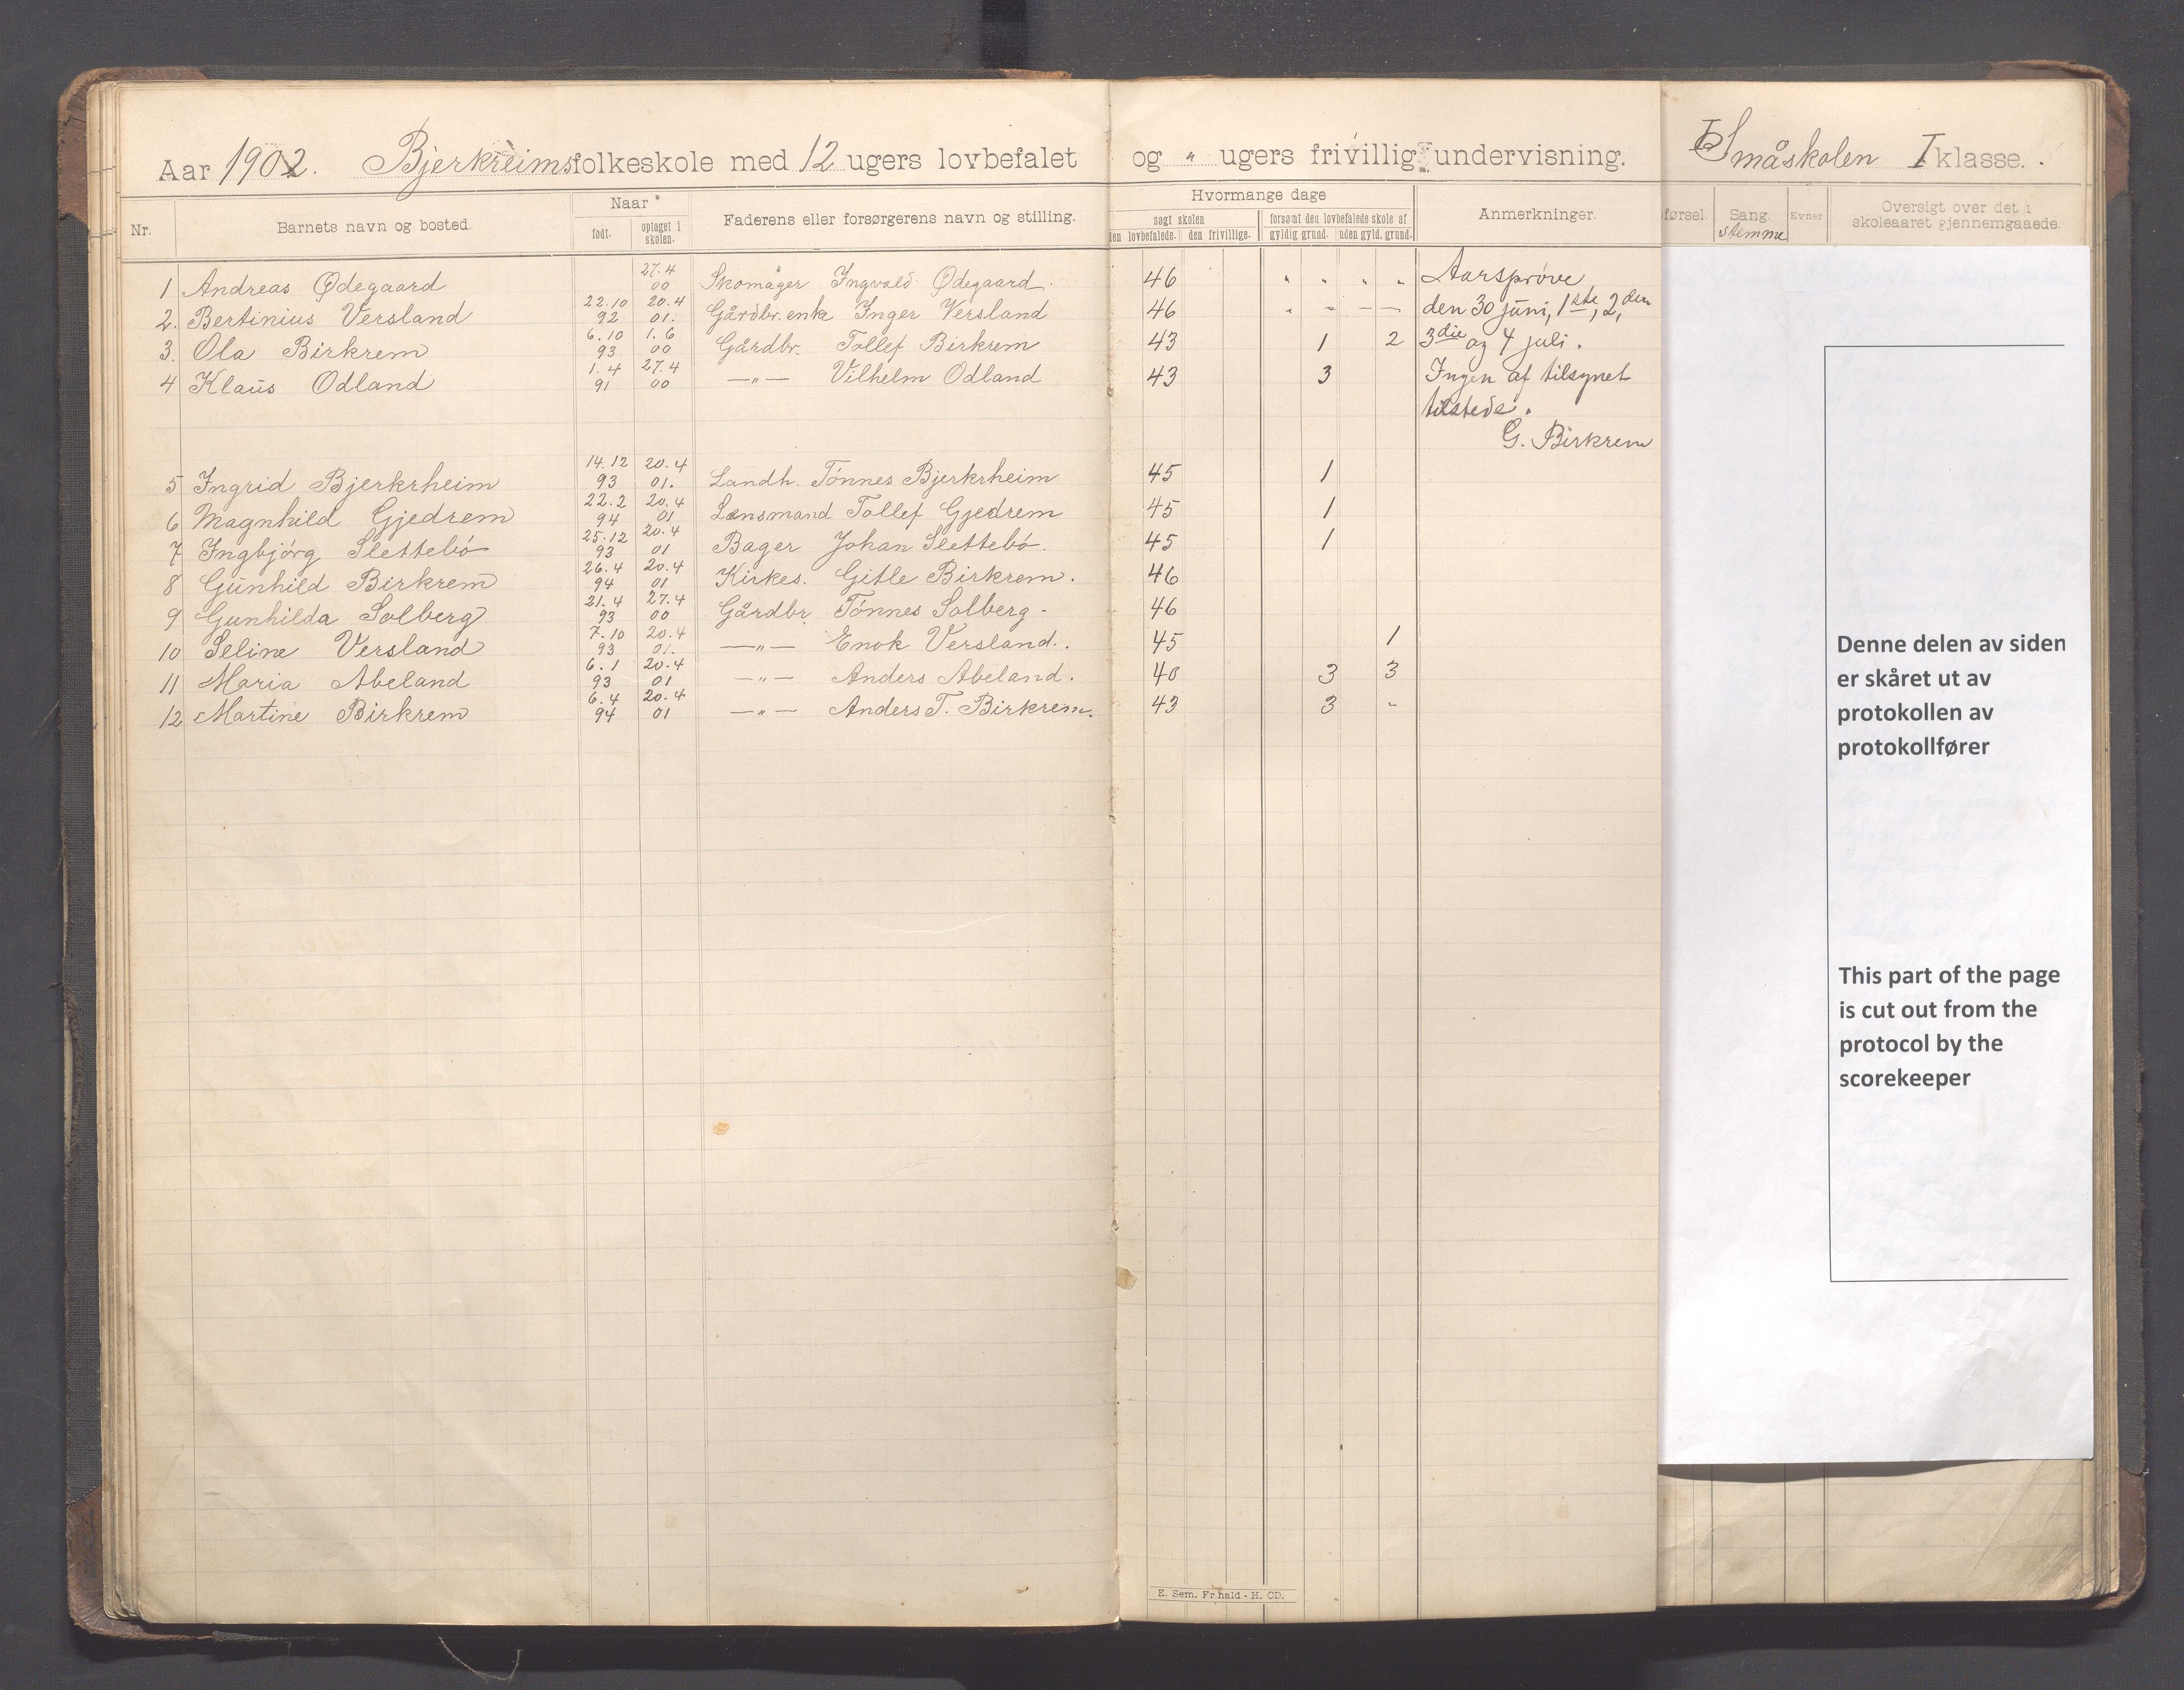 Aar 1902. Bjerkreims folkeskole med 12 ugers lovbefalet og " ugers frivillig undervisning. Småskolen I klasse.
Nr. Barnets navn og bosted. Naar født. optaget i skolen. Faderens eller forsørgerens navn og stilling.
Hvormange dage
søgt skolen forsømt den lovbefalede skole af Anmerkninger.
den lovbefalede. den frivillige. gyldig grund. uden gyld. grund.
førsel. Sang. stemme Evner Oversigt over det i skoleaaret gjennemgaaede.
1 Andreas Ødegaard 27.4 00 Skomager Ingvald Ødegaard. 46 " " " " Aarsprøve
2. Bertinius Versland 22.10 92 20.4 01. Gårdbr. enke Inger Versland 46 " - — — den 30 juni, 1ste, 2den,
3. Ola Birkrem 6.10 93 1.6 00 Gårdbr. Tollef Birkrem 43 1 2 3die og 4 juli.
4 Klaus Odland 1.4 91 27.4 00 —"— Vilhelm Odland 43 3 Ingen af tilsynet
tilstede.
G. Birkrem
5 Ingrid Bjerkrheim 14.12 93 20.4 01. Landh. Tönnes Bjerkrheim 45 1
6 Magnhild Gjedrem 22.2 94 20.4 01 Lensmand Tollef Gjedrem 45 1
7 Ingbjörg Slettebó 25.12 93 20.4 01 Bager Johan Slettebó. 45 1
8 Gunhild Birkrem 26.4 94 20.4 01 Kirkes. Gitle Birkrem. 46
9 Gunhilda Solberg 21.4 93 27.4 00 Gårdbr. Tönnes Solberg - 46
10 Seline Versland 7.10 93 20.4 01. —"— Enok Versland. 45 1
11 Maria Abeland 6.1 93 20.4 01 —"— Anders Abeland. 40 3 3
12 Martine Birkrem 6.4 94 20.4 01 —"— Anders T. Birkrem. 43 3 "
Denne delen av siden
er skåret ut av
protokollen av
protokollfører
This part of the page
is cut out from the
protocol by the
scorekeeper
E. Sem. Fr.hald - H. CD.